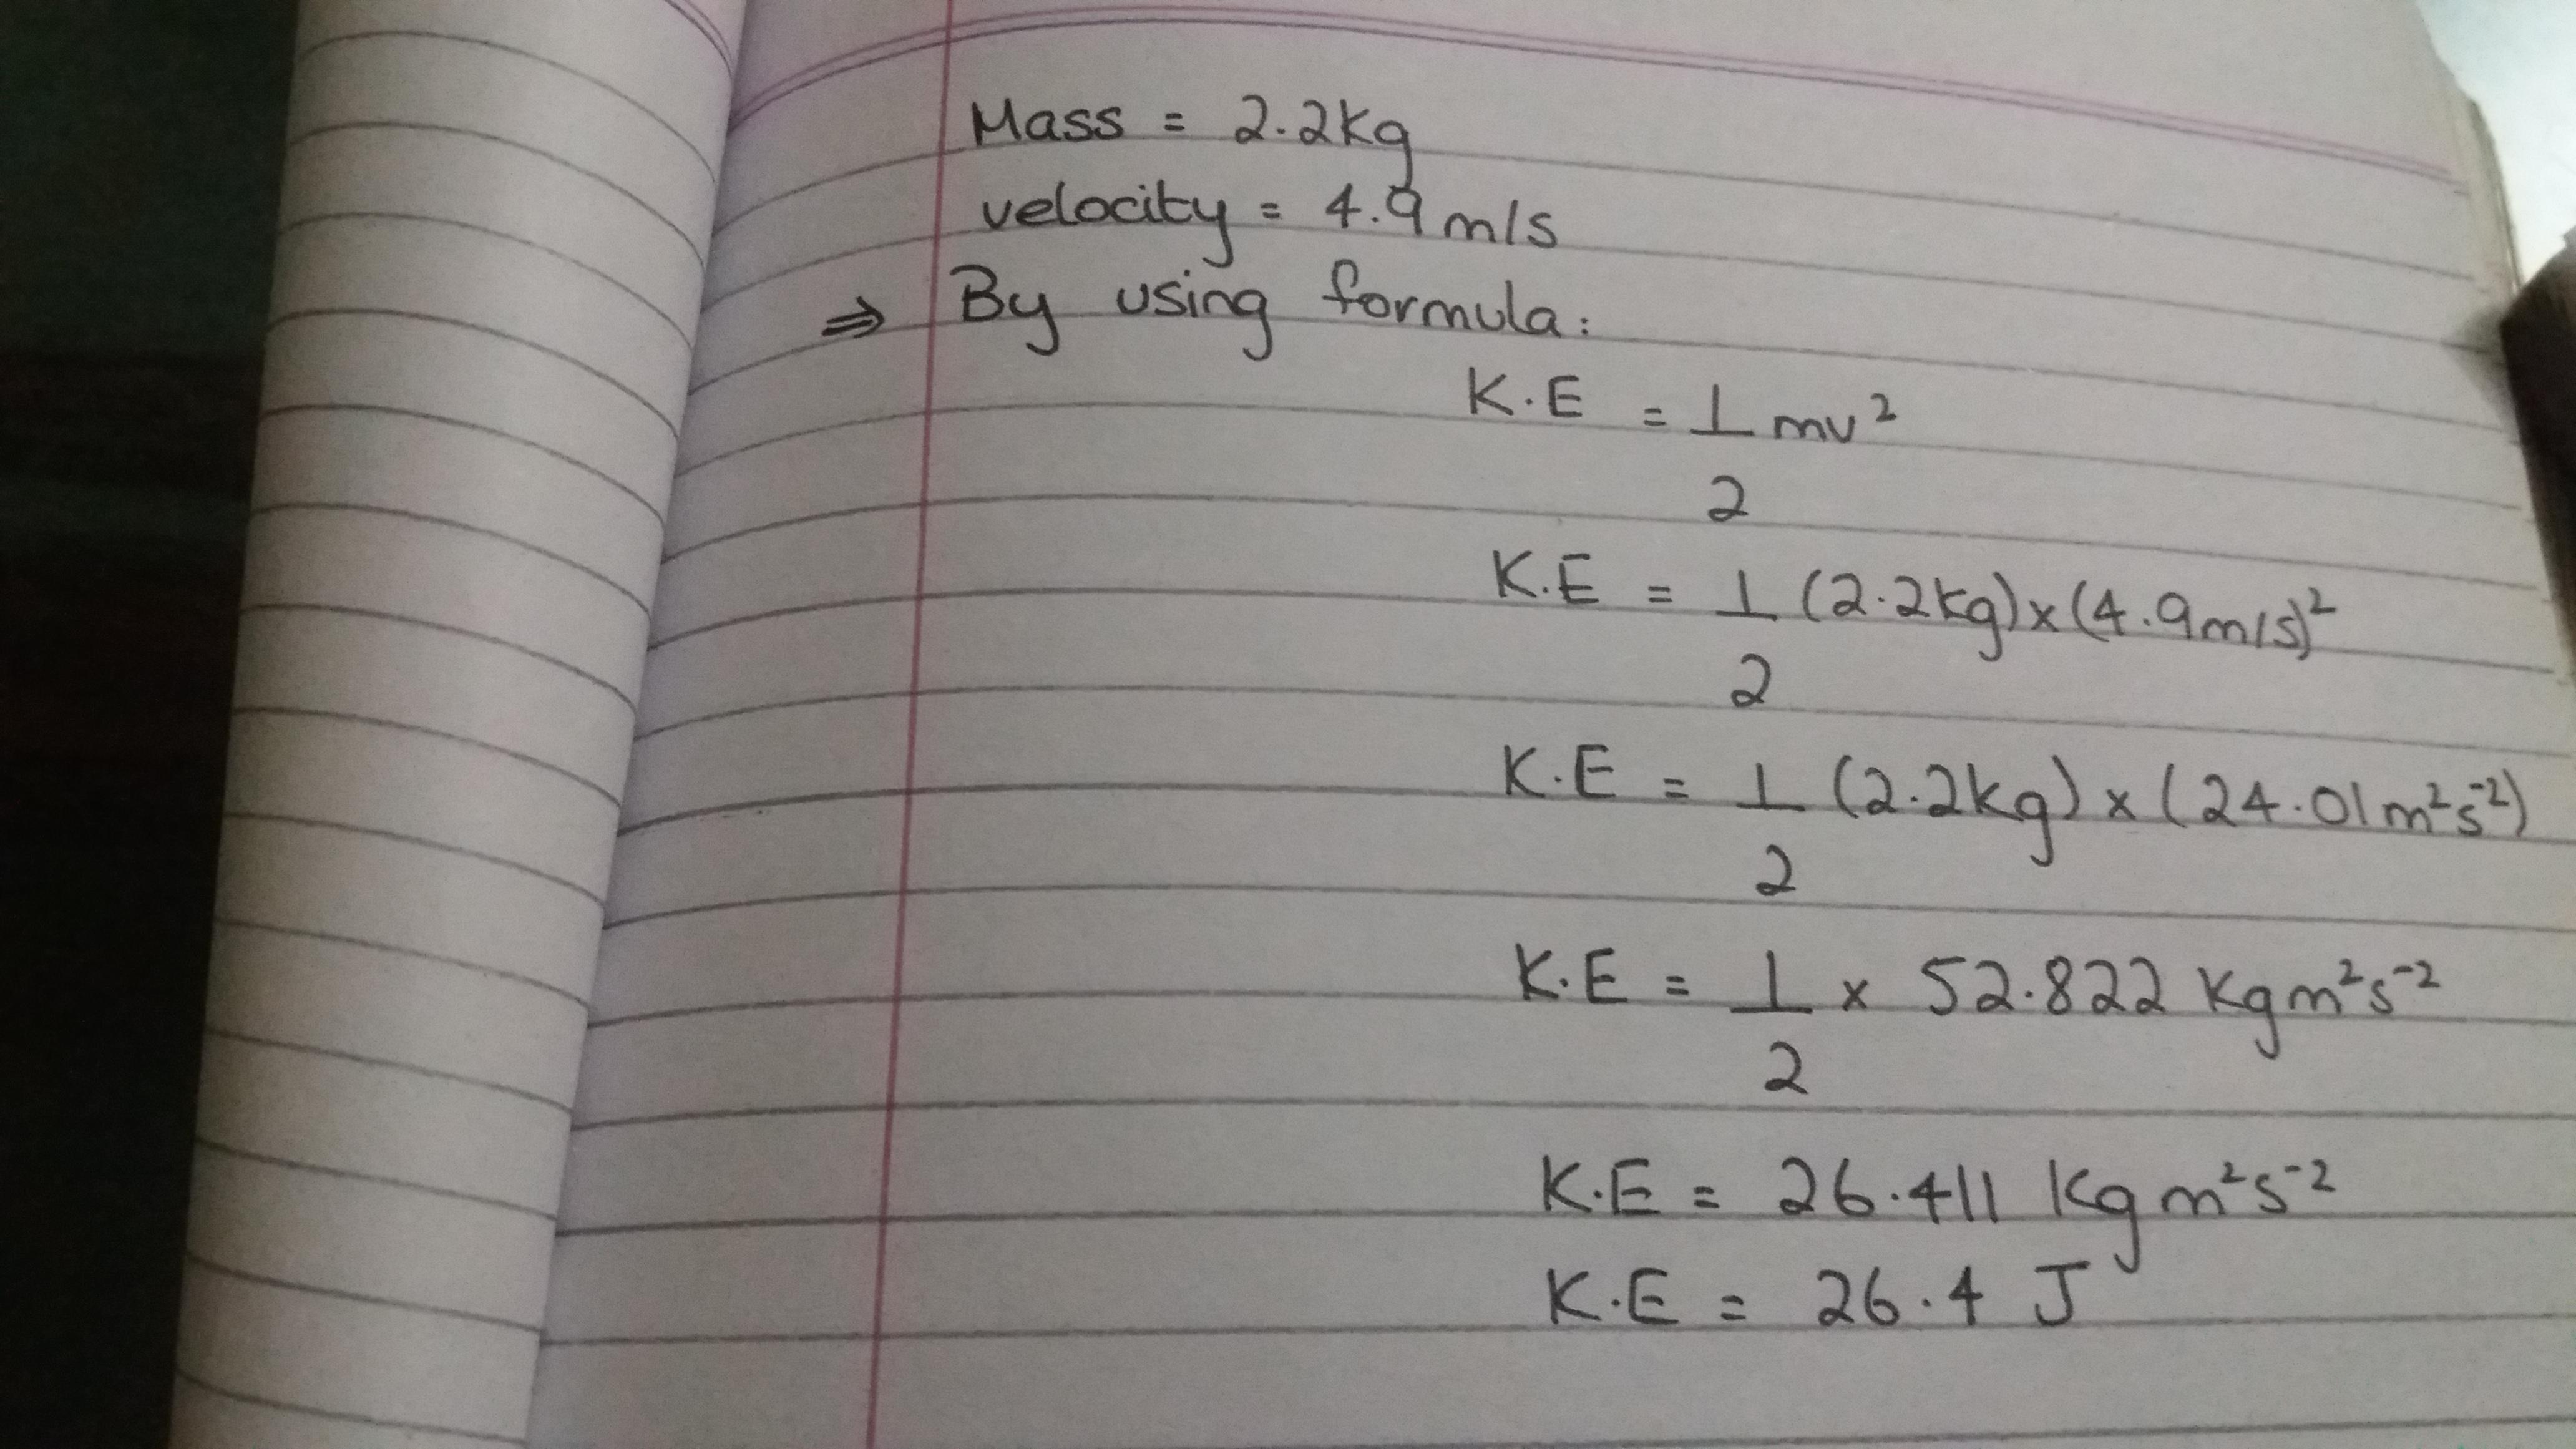 Mass = 2.2kg
velocity = 4.9 m/s
⇒ By using formula:
K.E = 1/2 mv²
K.E = 1/2 (2.2kg) x (4.9m/s)²
K.E = 1/2 (2.2kg) x (24.01 m²s⁻²)
K.E = 1/2 x 52.822 Kg m²s⁻²
K.E = 26.411 Kg m²s⁻²
K.E = 26.4 J